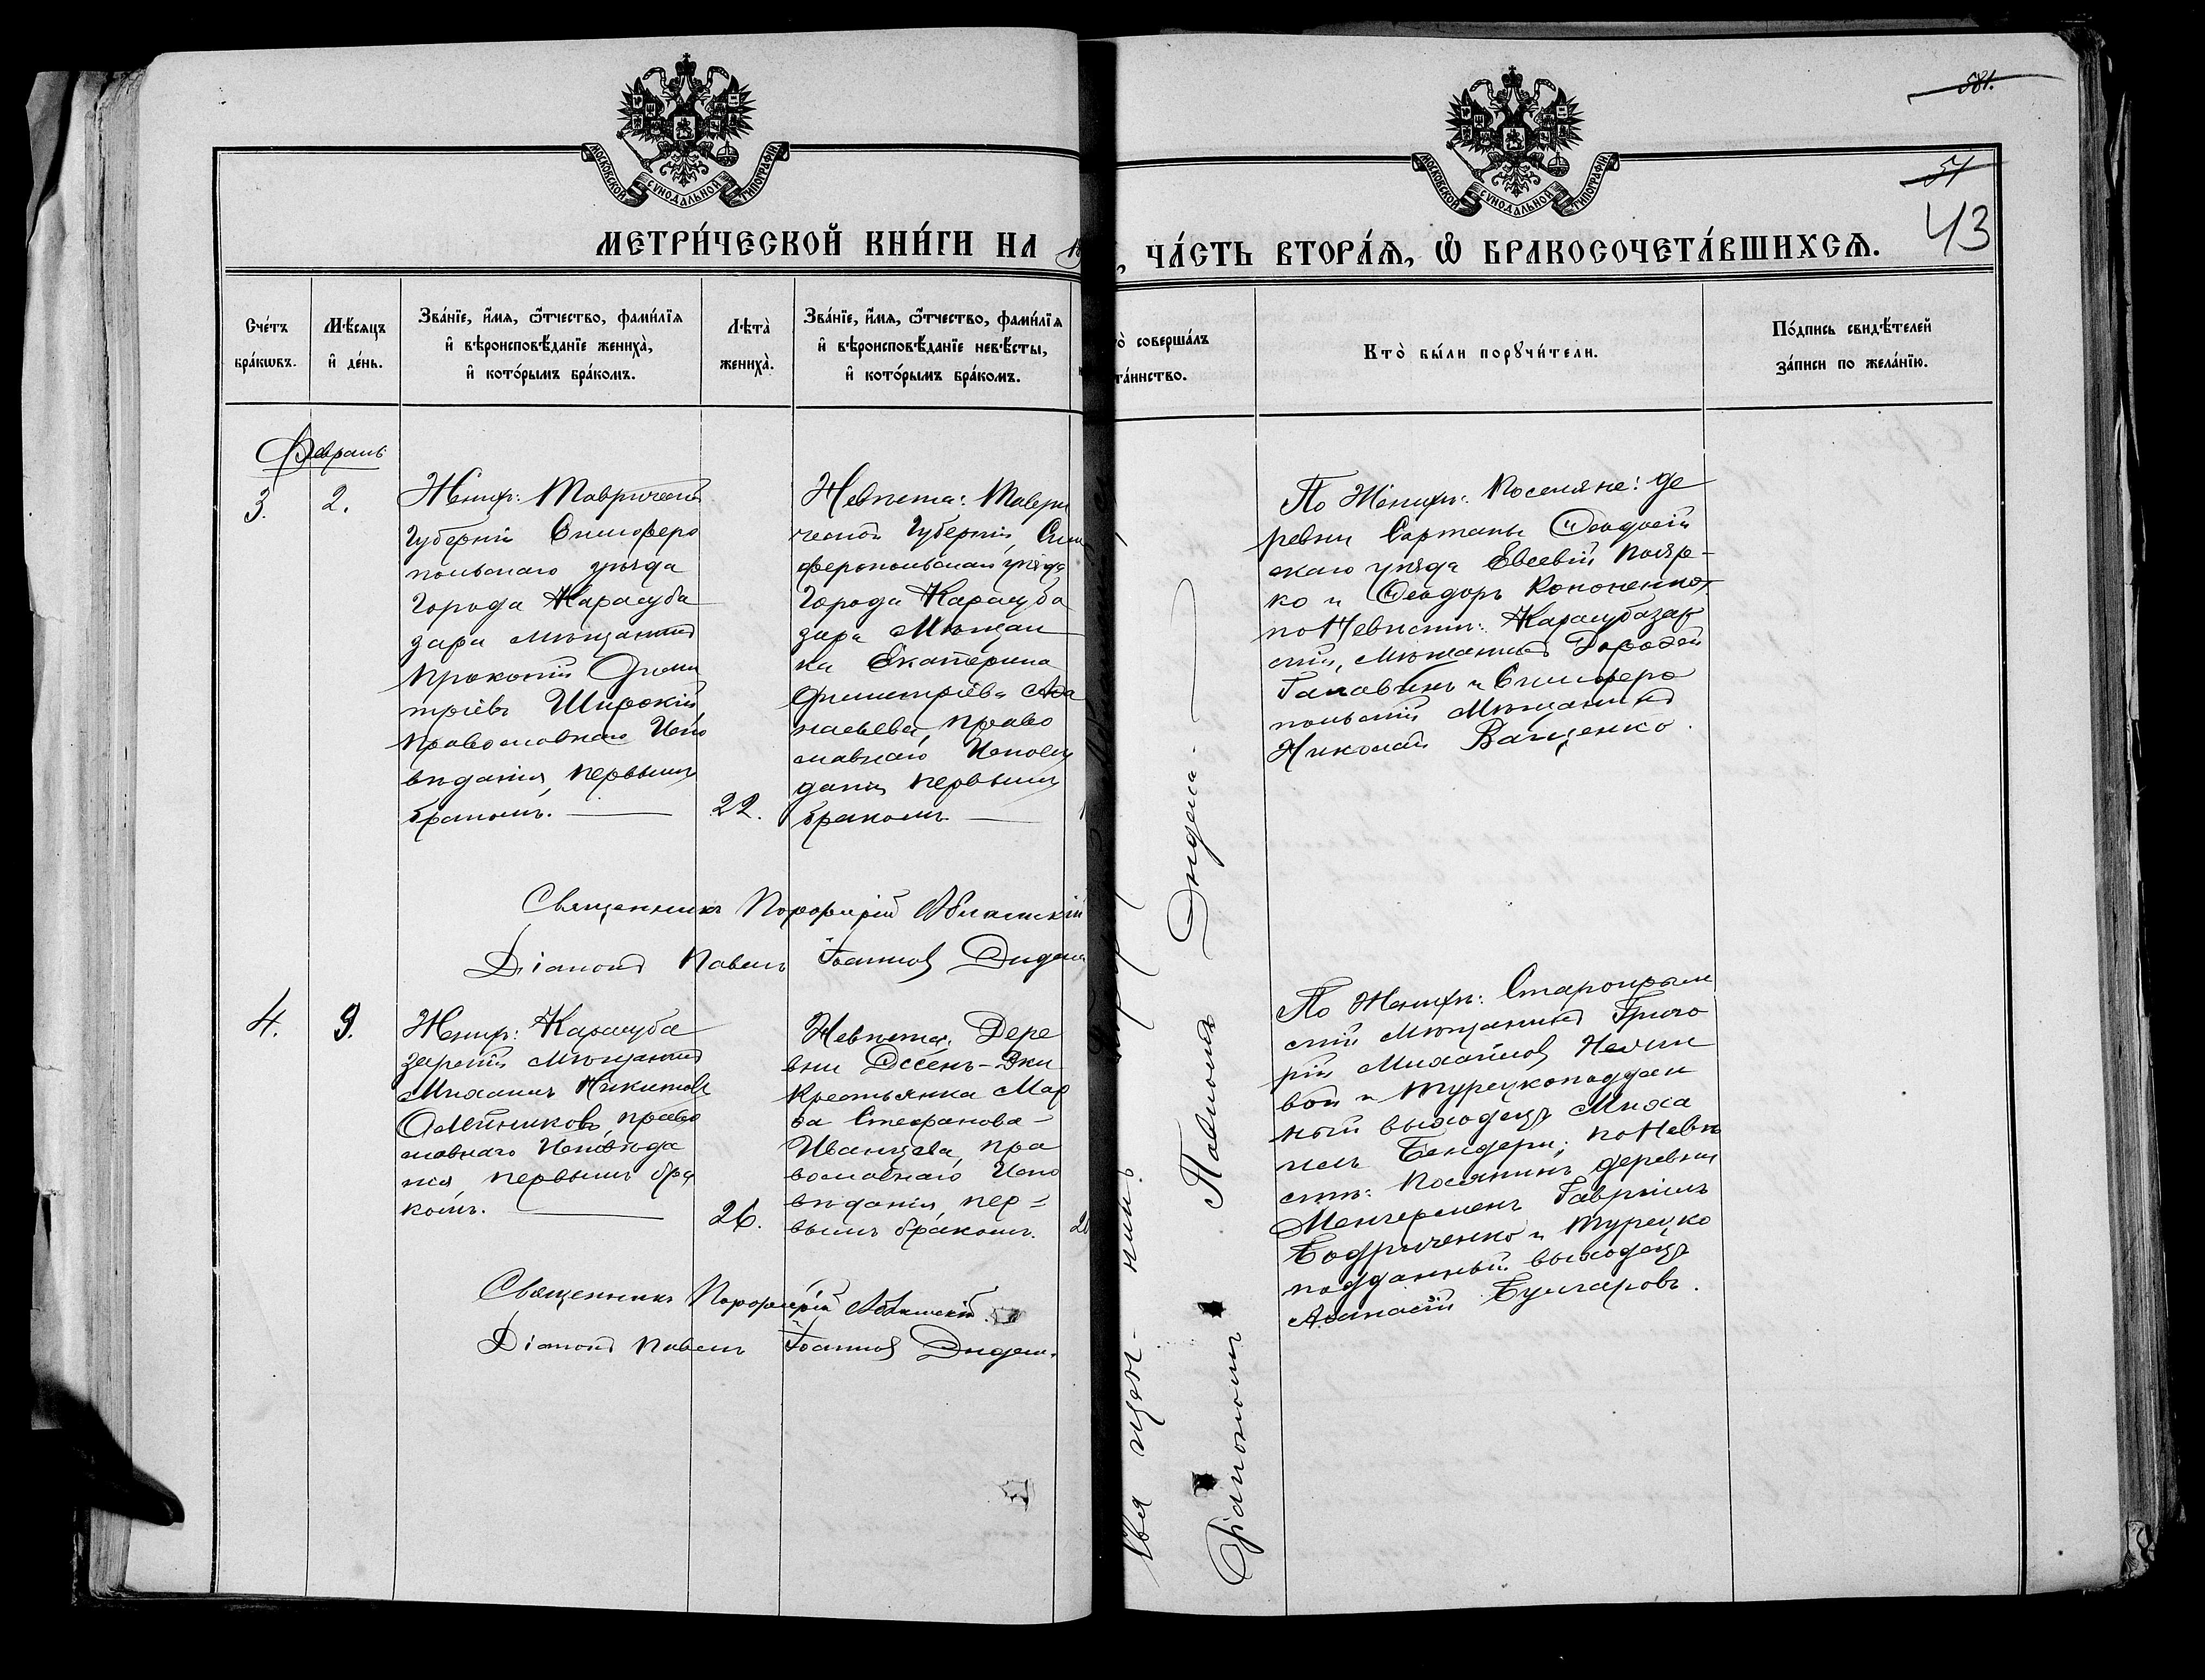 581.
51
43
МОСКОВСКОЙ СѴНОДАЛЬНОЙ ТИПОГРАФІИ
МОСКОВСКОЙ СѴНОДАЛЬНОЙ ТИПОГРАФІИ
МЕТРИ́ЧЕСКОЙ КНИ́ГИ НА
, ЧА́СТЬ ВТОРА́Ѧ, Ѽ БРАКОСОЧЕТА́ВШИХСѦ.
Сче́тъ
бра́кѡвъ.
Мѣ́сяцъ
и҆ де́нь.
Зва́нїе, и҆́мя, ѻ҆́тчество, фами́лїя
и҆ вѣроисповѣ́данїе жениха̀,
и҆ кото́рымъ бра́комъ.
Лѣта̀
жениха̀.
Зва́нїе, и҆́мя, ѻ҆́тчество, фами́лїя
и҆ вѣроисповѣ́данїе невѣ́сты,
и҆ кото́рымъ бра́комъ.
о̀ соверша́лъ
та́инство.
Кто̀ бы́ли порꙋчи́тели.
По́дпись свидѣ́телей
за́писи по жела́нїю.
Февраль
3.
2.
Женихъ: Таврической
Губерніи Симферо
польскаго уѣзда
Города Карасуба
зара мѣщанинъ
Прокопій Дими
тріевъ Широкій
православнаго Испо
вѣданія, первымъ
бракомъ.
22.
Невѣста: Таври
ческой Губерніи, Сим
феропольскаго уѣзда
Города Карасуба
зара Мѣщан
ка Екатерина
Димитріева Аѳа
насьева, право
славнаго Исповѣ
данія первымъ
бракомъ
По Женихѣ: Поселяне: де
ревни Сартаны Ѳеодосій
скаго уѣзда Евсевій Пояр-
ко и Ѳеодоръ Кононенко,
по Невѣстѣ: Карасубазар
скій, мѣщанинъ
и Симферо
польскій Мѣщанинъ
Николай Ващенко.
Священникъ Порфирій
Діаконъ Павелъ Іоанновъ Дидема
4.
9.
Женихъ: Карасуба
зарскій мѣщанинъ
Михаилъ Никитовъ
Олейниковъ, право
славнаго Исповѣда
нія, первымъ бра
комъ.
26.
Невѣста: Дере
вни Эссенъ-Эки
крестьянка Мар
ѳа Стефанова-
Иванцева, пра
вославнаго Испо
вѣданія, пер=
вымъ бракомъ.
По Женихѣ: Старокрым
скій мѣщанинъ Григо
рій Михайловъ
вой и Турецкоподдан
ный выходецъ Миха
илъ Бендери; по Невѣ
стѣ: Поселянинъ деревни
Менгерменъ Гавріилъ
Бодриченко и Турецко
подданный выходецъ
Аѳанасій Булгаровъ.
Священникъ Порфирій
Діаконъ Павелъ Іоанновъ Дидема.
Діакономъ Павломъ Дидема.